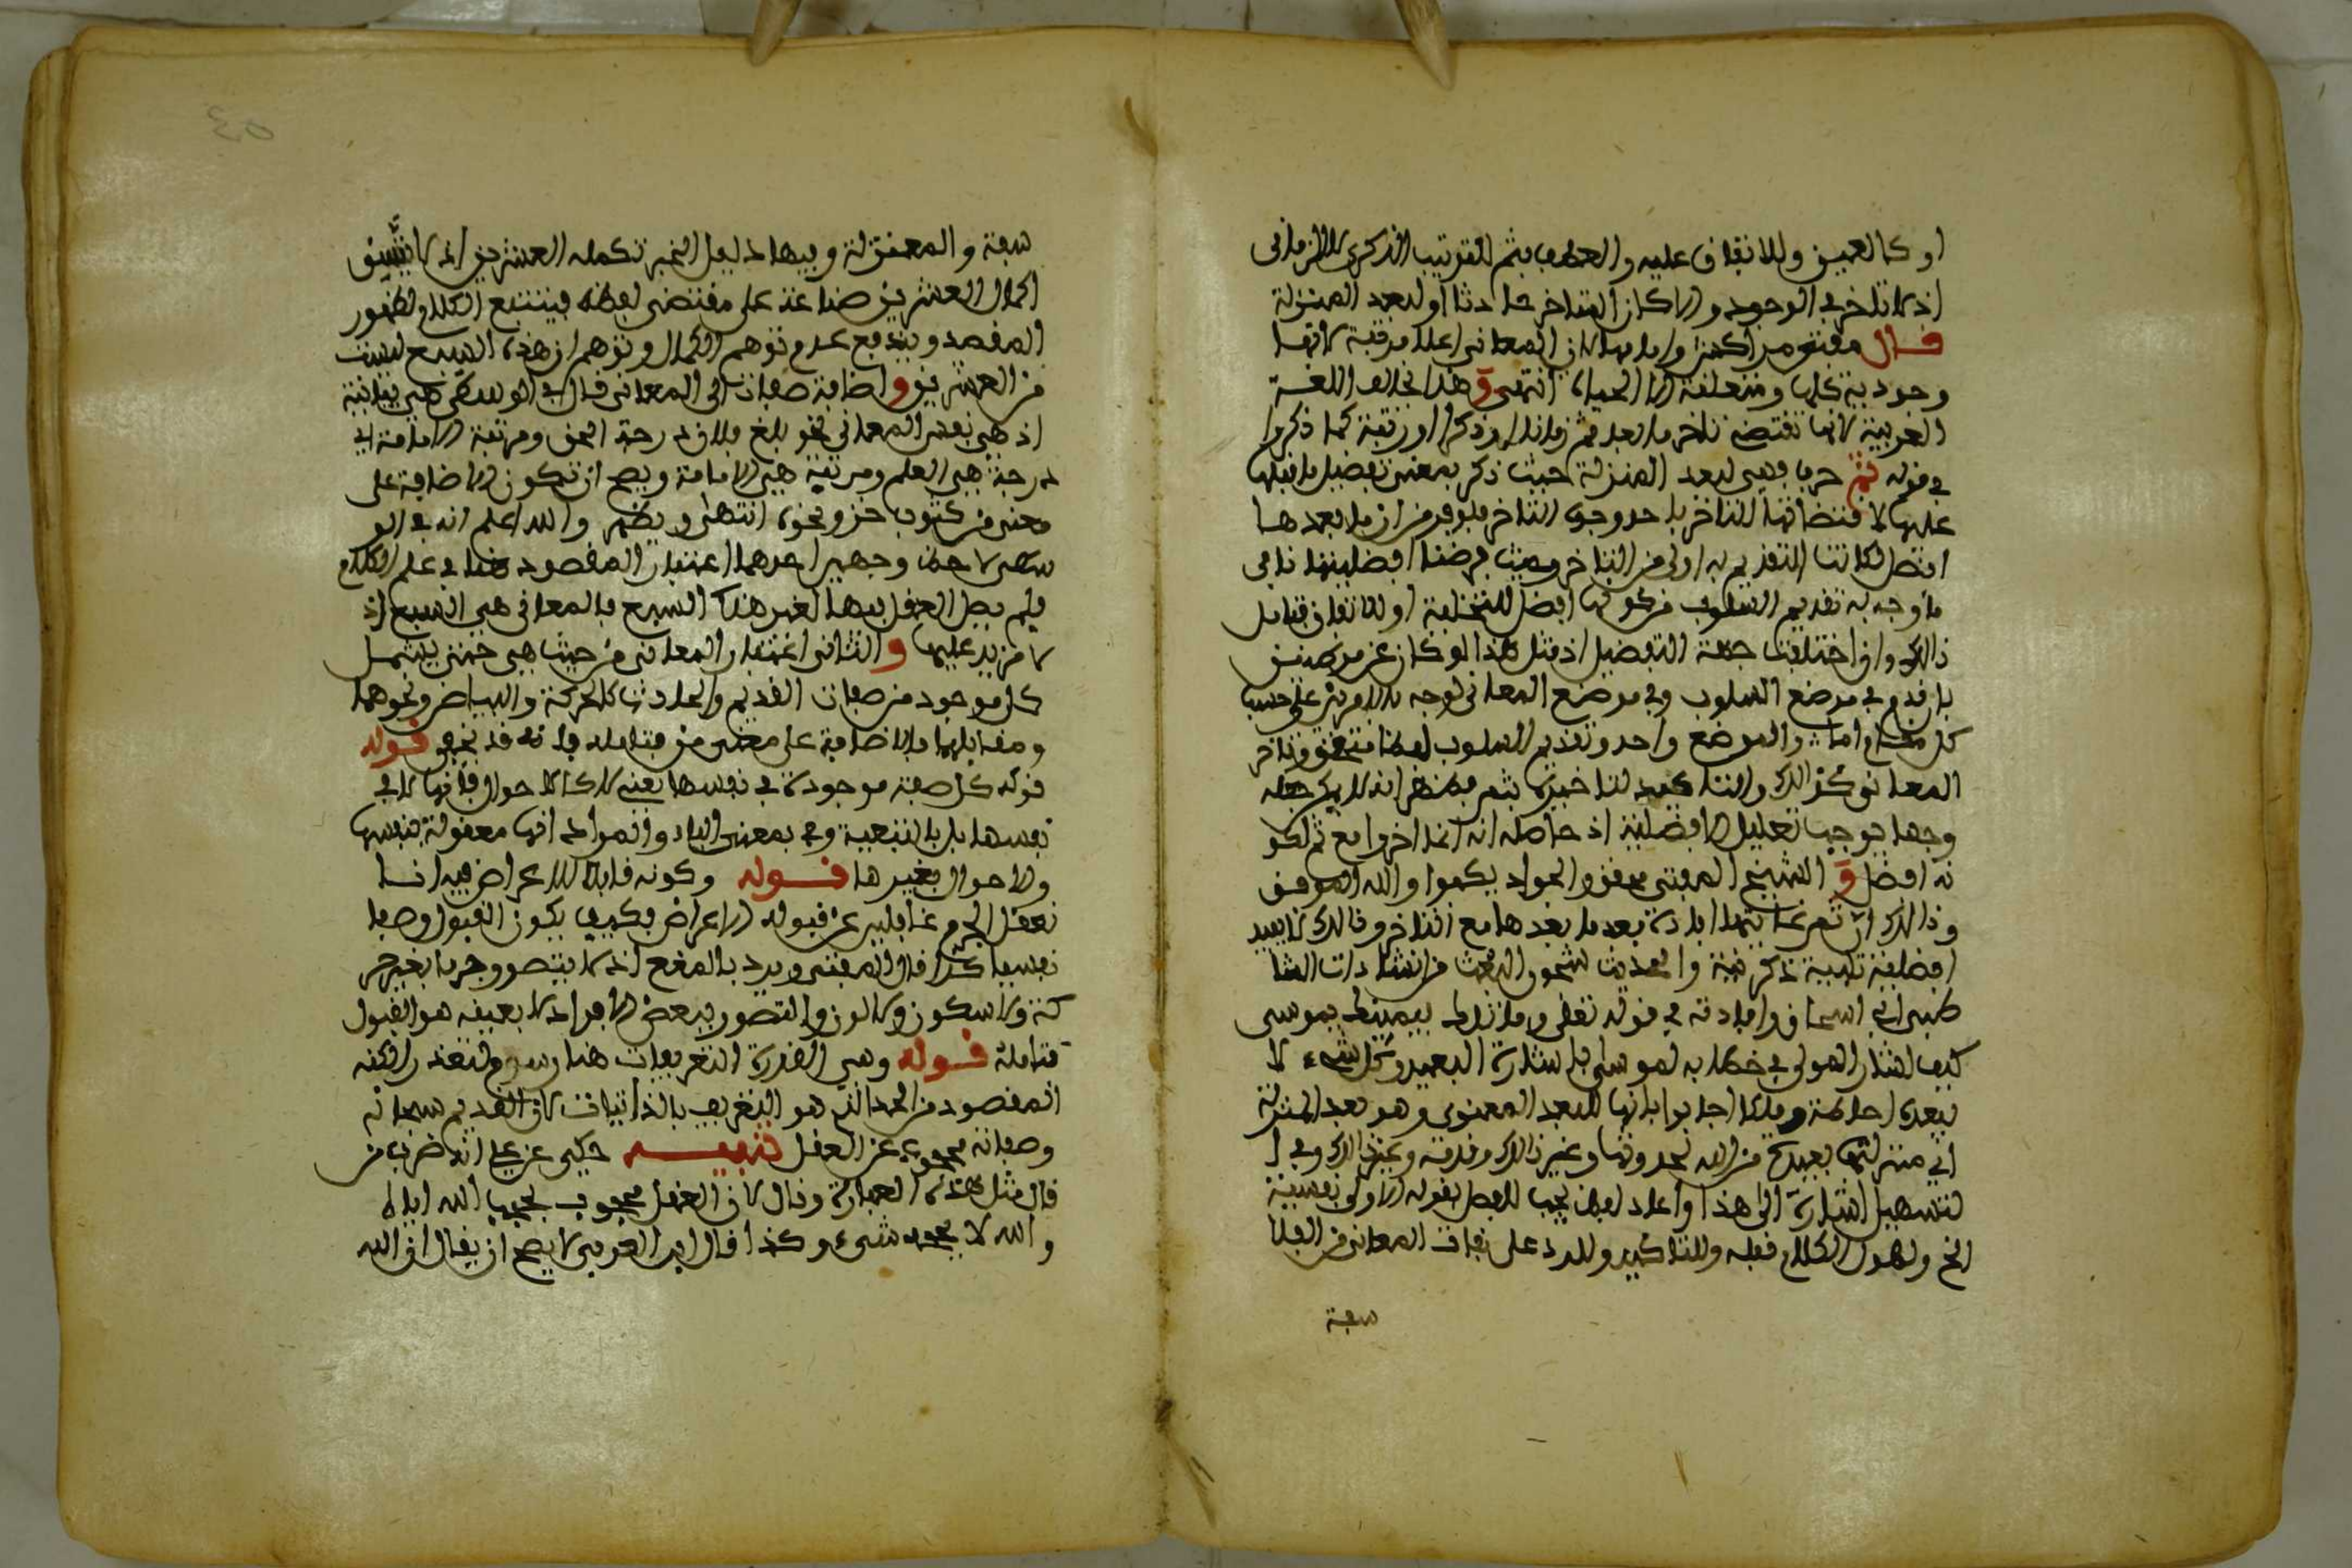 او كالعين وللاتفاق عليه والعطف بثم للترتيب الذكري لا الزماني
اذ لا تاخر في الوجود والا كان المتاخر حادثا او لبعد المنزلة
قال مفتي مراكش واما بها لان المعاني اعلا مرتبة لانها
وجودية كلها ومتعلقة الا الحياة انتهى وهذا بخلاف اللغة
العربية لانها تقتضي تاخر ما بعد ثم زمانا او ذكرا او رتبة كما ذكروا
في قوله ثم حرف فهي لبعد المنزلة حيث ذكر بمعنى تفضيل ما قبلها
عليها لاقتضائها التاخر باحد وجوه التاخر فلو فرض ان ما بعدها
افضل لكانت التقديم به اولى من التاخر وحيث فرضنا افضليتها نافى
ما وجه به تقديم السلوب من كونها افضل للتخلية او للاتفاق فتامل
ذالك وان اختلفت جهة التفضيل اذ مثل هذا لو كان عن موضعين
بان قدم في موضع السلوب وفي موضع المعاني لوجه بالامرين على حسب
كل مقام اما والموضع واحد وتقديم السلوب لفظا متحقق وتاخر
المعاني كذلك والتاكيد لتاخيرها بثم فظهر انه لا يمكن جعله
وجها يوجب تعليل الافضلية اذ حاصله انه انما اخرها مع ثم لكو
نه افضل و الشيخ المفتي محقق والجواد يكبوا والله الموفق
وذالك ان ثم غايتها افادة بعد ما بعدها مع التاخر وذالك لا يفيد
افضلية تنبيه ذكر فيه والحديث شجون البحث من انشادات الشا
طبي ابي اسحاق وافادته في قوله تعلى وما تلك بيمينك يموسى
كيف اشار المولى في خطابه لموسى باشارة البعيد وكل شيء لا
يبعده احاطة وملكا اجابوا بانها للبعد المعنوي وهو بعد المنزلة
اي منزلتها بعيدة من الله لحدوثها وغير ذالك وقدمه وغير ذالك وفي ا
لتسهيل اشارة الى هذا واعاد لفظ يجب للفصل بقوله الاولى نفسية
الخ ولطول الكلام قبله وللتاكيد وللرد على نفات المعاني من الفلا
سفة
سفة والمعتزلة وفيها دليل الخبر تكمله العشرين اذ لا
اكمال العشرين صناعة على مقتضى لفظه فيتتبع الكلام لظهور
المقصد ويندفع عدم توهم الكمال وتوهم ان هذه السبع ليست
من العشرين و اضافة صفات الى المعاني قال في الوسطى هي بيانية
اذ هي نفس المعاني نحو بلغ فلان درجة الحق ومرتبة الامامة اي
درجة هي العلم ومرتبة هي الامامة ويصح ان تكون الاضافة على
معنى من كثوب خز ونحوه انتهى ويظهر والله اعلم انه في الو
سطى لاحظ وجهين احدهما اعتبار المقصود هنا في علم الكلام
فلم يصل العقل فيها لغير هذه السبع فالمعاني هي السبع اذ
لا مزيد عليها و الثاني اعتبار المعاني من حيث هي حتى يشمل
كل موجود من صفات القديم والحادث كالحركة والبياض ونحوهما
ومقابلها بالاضافة على معنى من فتامله فانه قد يخفى قوله
قوله كل صفة موجودة في نفسها يعني لا كالاحوال فانها لا في
نفسها بل بالتبعية وفي بمعنى الباء والمراد انها معقولة بنفسها
والاحوال بغيرها قوله وكونه قابلا للاعراض فيه انا
نعقل الجرم غافلين عن قبوله الاعراض فكيف يكون القبول وصفا
نفسيا كذا قال المفتي ويرد بالمنع اذ لا يتصور جرما بغير حر
كة ولا سكون ولا لون والتصور ببعض الافراد لا بعينه هو القبول
فتامله قوله وهي القدرة التعريفات هنا رسوم لتعذر الكنه
المقصود من الحد الذي هو التعريف بالذاتيات لان القديم سبحانه
وصفاته محجوب عن العقل تنبيه حكي عن علي انه ضرب من
قال مثل هذه العبارة وقال لان العقل محجوب بحجب الله اياه
والله لا يحجبه شيء وكذا قال ابن العربي لا يصح ان يقال ان الله